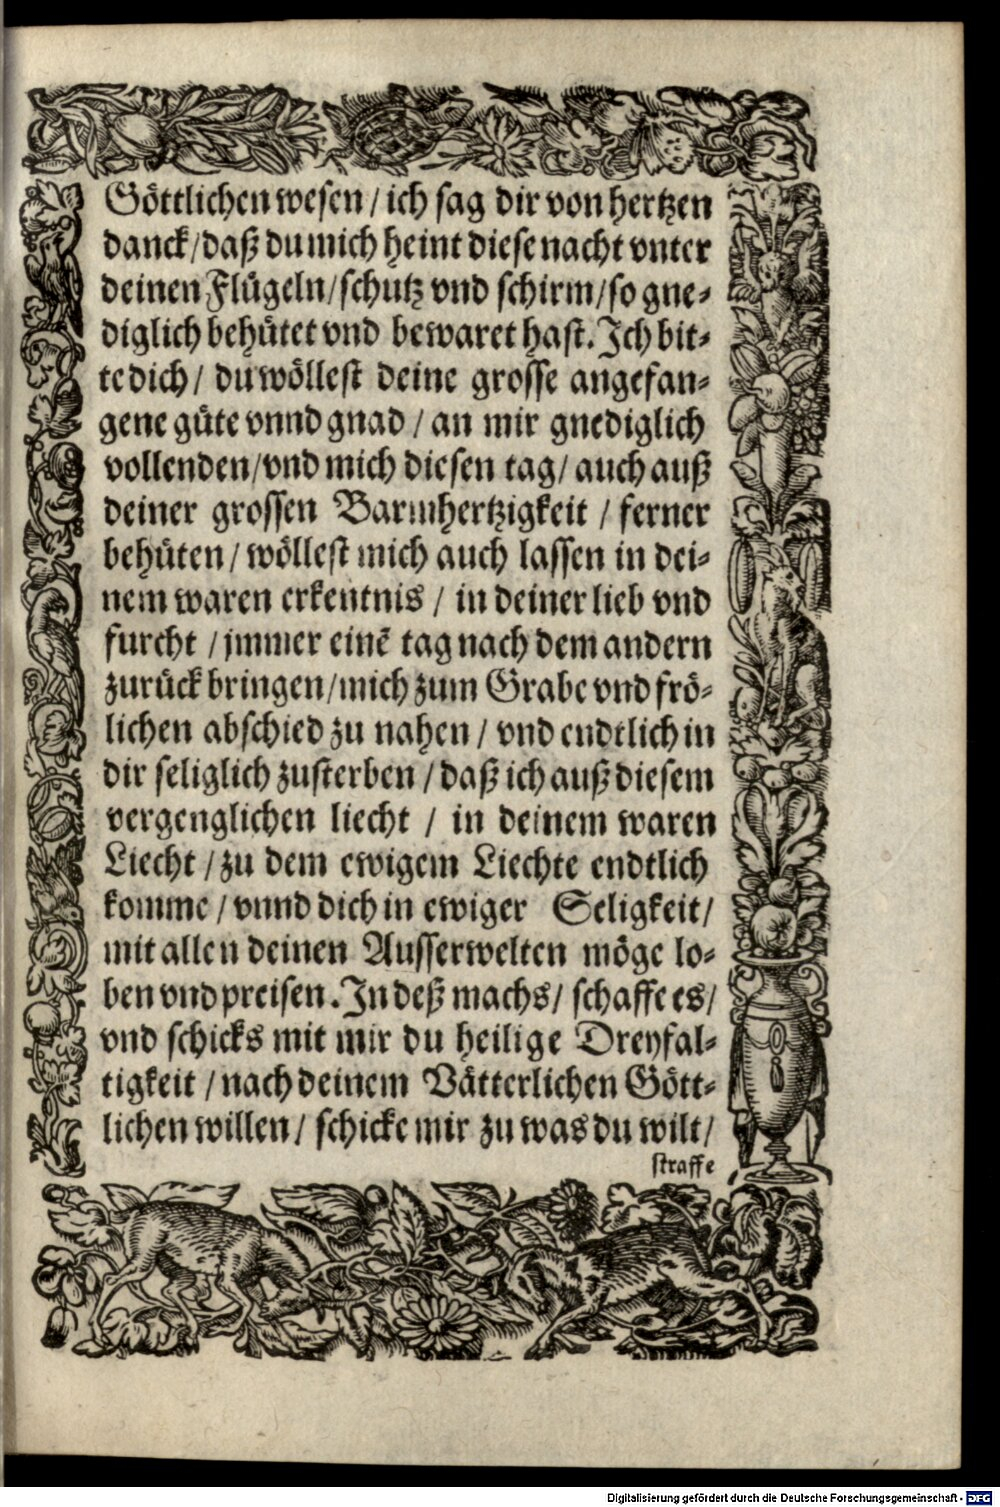 Göttlichen wesen / ich sag dir von hertzen
danck / daß du mich heint diese nacht vnter
deinen Flügeln / schutz vnd schirm / so gne-
diglich behütet vnd bewaret hast. Ich bit-
te dich / du wöllest deine grosse angefan-
gene güte vnnd gnad / an mir gnediglich
vollenden / vnd mich diesen tag / auch auß
deiner grossen Barmhertzigkeit / ferner
behüten / wöllest mich auch lassen in dei-
nem waren erkentnis / in deiner lieb vnd
furcht / jmmer einē tag nach dem andern
zurück bringen / mich zum Grabe vnd frö-
lichen abschied zu nahen / vnd endtlich in
dir seliglich zusterben / daß ich auß diesem
vergenglichen liecht / in deinem waren
Liecht / zu dem ewigem Liechte endtlich
komme / vnnd dich in ewiger Seligkeit /
mit allen deinen Ausserwelten möge lo-
ben vnd preisen. In deß machs / schaffe es /
vnd schicks mit mir du heilige Dreyfal-
tigkeit / nach deinem Vätterlichen Gött-
lichen willen / schicke mir zu was du wilt /
straffe
Digitalisierung gefördert durch die Deutsche Forschungsgemeinschaft - DFG